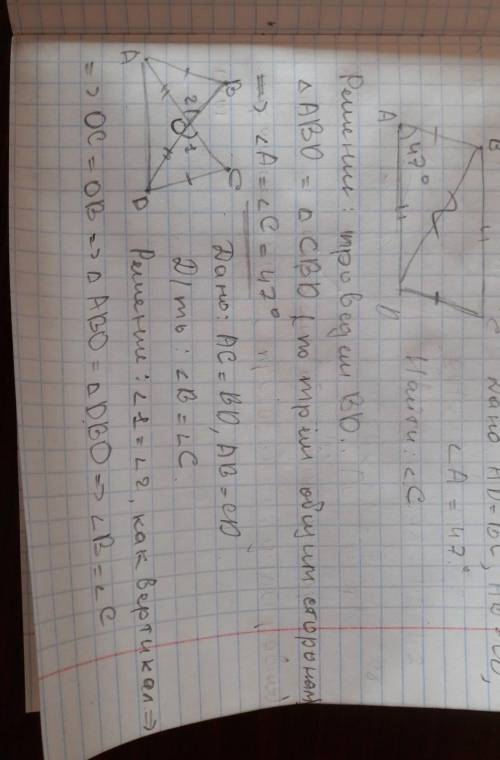 Дано AD=BC, AB=CD,
∠A = 47°
Найти: ∠C
A
B
47°
D
C
Решение: проведем BD.
△ABD = △CBD (по трём общим сторонам)
=> ∠A = ∠C = 47°
A
B
2
1
O
C
D
Дано: AC = BD, AB = CD
Д/ть: ∠B = ∠C
Решение: ∠1 = ∠2, как вертикал =>
=> OC = OB => △ABO = △DBO => ∠B = ∠C